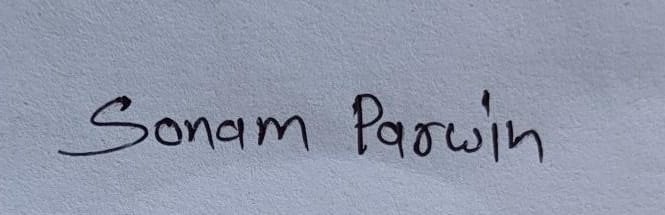 Sonam Parwin